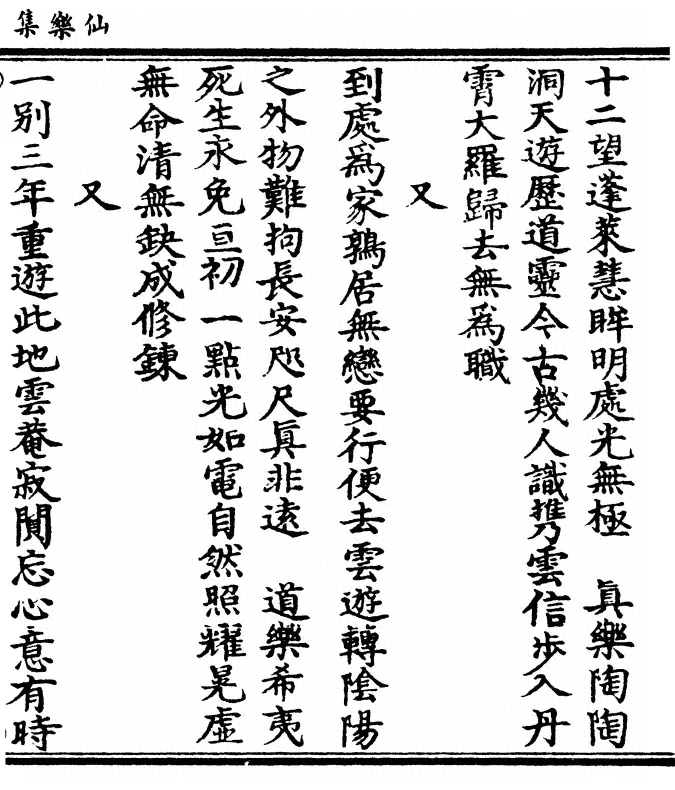 仙樂集
十二望蓬萊慧眸明處光無極　真樂陶陶
洞天遊歷道靈今古幾人識攜雲信步入丹
霄大羅歸去無爲職
又
到處爲家鶉居無戀要行便去雲遊轉陰陽
之外物難拘長安咫尺眞非遠　道樂希夷
死生永免亘初一點光如電自然照耀晃虛
無命清無缺成修鍊
又
一別三年重遊此地雲菴寂闃忘心意有時